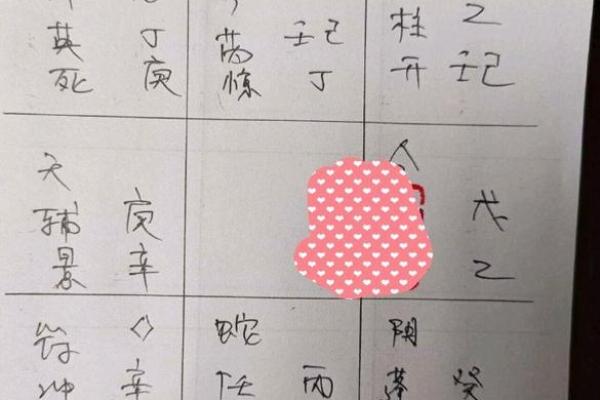 英 丁 芮 壬己 柱 乙
死 庚 惊 丁 开 壬己
天
辅 庚 戊
景 辛 乙
符 蛇 阴
冲 辛 任 丙 蓬 癸